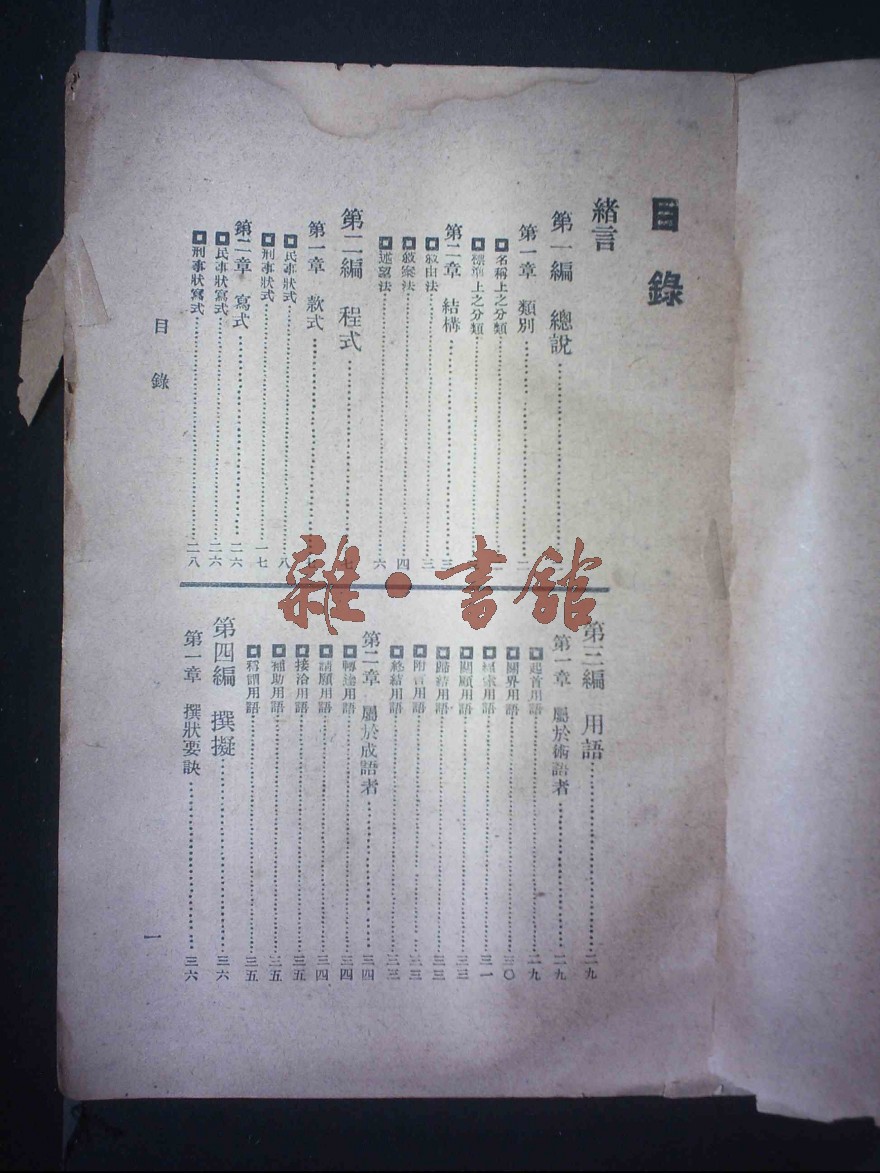 目錄
緒言
第一編 總說
第一章 類別 二
名稱上之分類
標準上之分類
第二章 結構 三
敍由法 三
敍案法 四
述望法 六
第二編 程式 七
第一章 款式 七
民事狀式 八
刑事狀式 一七
第二章 寫式 二六
民事狀寫式 二六
刑事狀寫式 二八
第三編 用語 二九
第一章 屬於術語者 二九
起首用語 二九
關界用語 三〇
經索用語 三一
關顧用語 三三
歸結用語 三三
附言用語 三三
終結用語 三三
第二章 屬於成語者 三四
轉達用語 三四
請願用語 三四
接洽用語 三五
補助用語 三五
稱謂用語 三五
第四編 撰擬 三六
第一章 撰狀要訣 三六
目錄
一
雜·書館